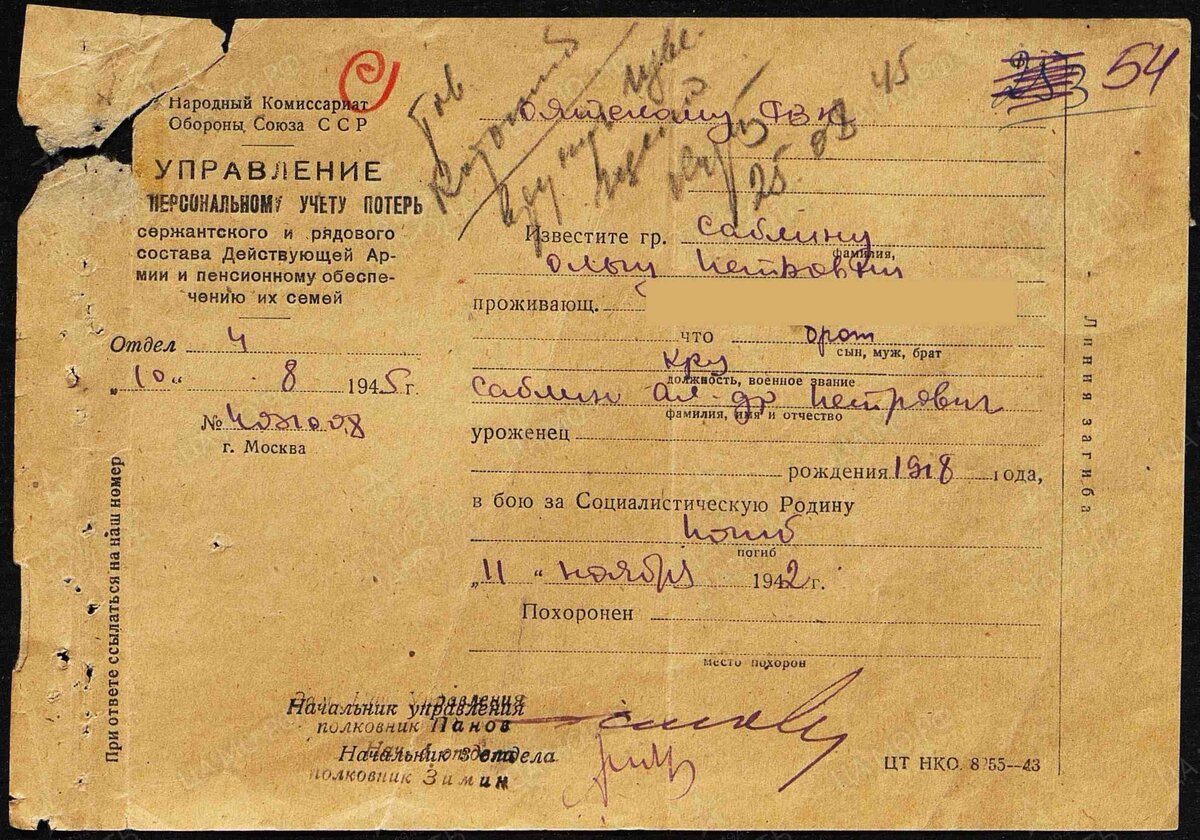 54
Народный Комиссариат
Обороны Союза ССР
УПРАВЛЕНИЕ
ПЕРСОНАЛЬНОМУ УЧЕТУ ПОТЕРЬ
сержантского и рядового
состава Действующей Ар-
мии и пенсионному обеспе-
чению их семей
Отдел 4
„10“ 8 1945 г.
№
г. Москва
При ответе ссылаться на наш номер
Оятскому РВК
25. 08 45
Известите гр. Саблину
фамилия,
Ольгу Петровну
проживающ.
что брат
сын, муж, брат
кр-ц
должность, военное звание
Саблин Ал-др Петрович
фамилия, имя и отчество
уроженец
рождения 1918 года,
в бою за Социалистическую Родину
погиб
погиб
„11“ ноября 1942 г.
Похоронен
место похорон
Начальник управления
полковник Панов
Начальник 3 отдела
полковник Зимин
ЦТ НКО. 8 55—43
Линия загиба